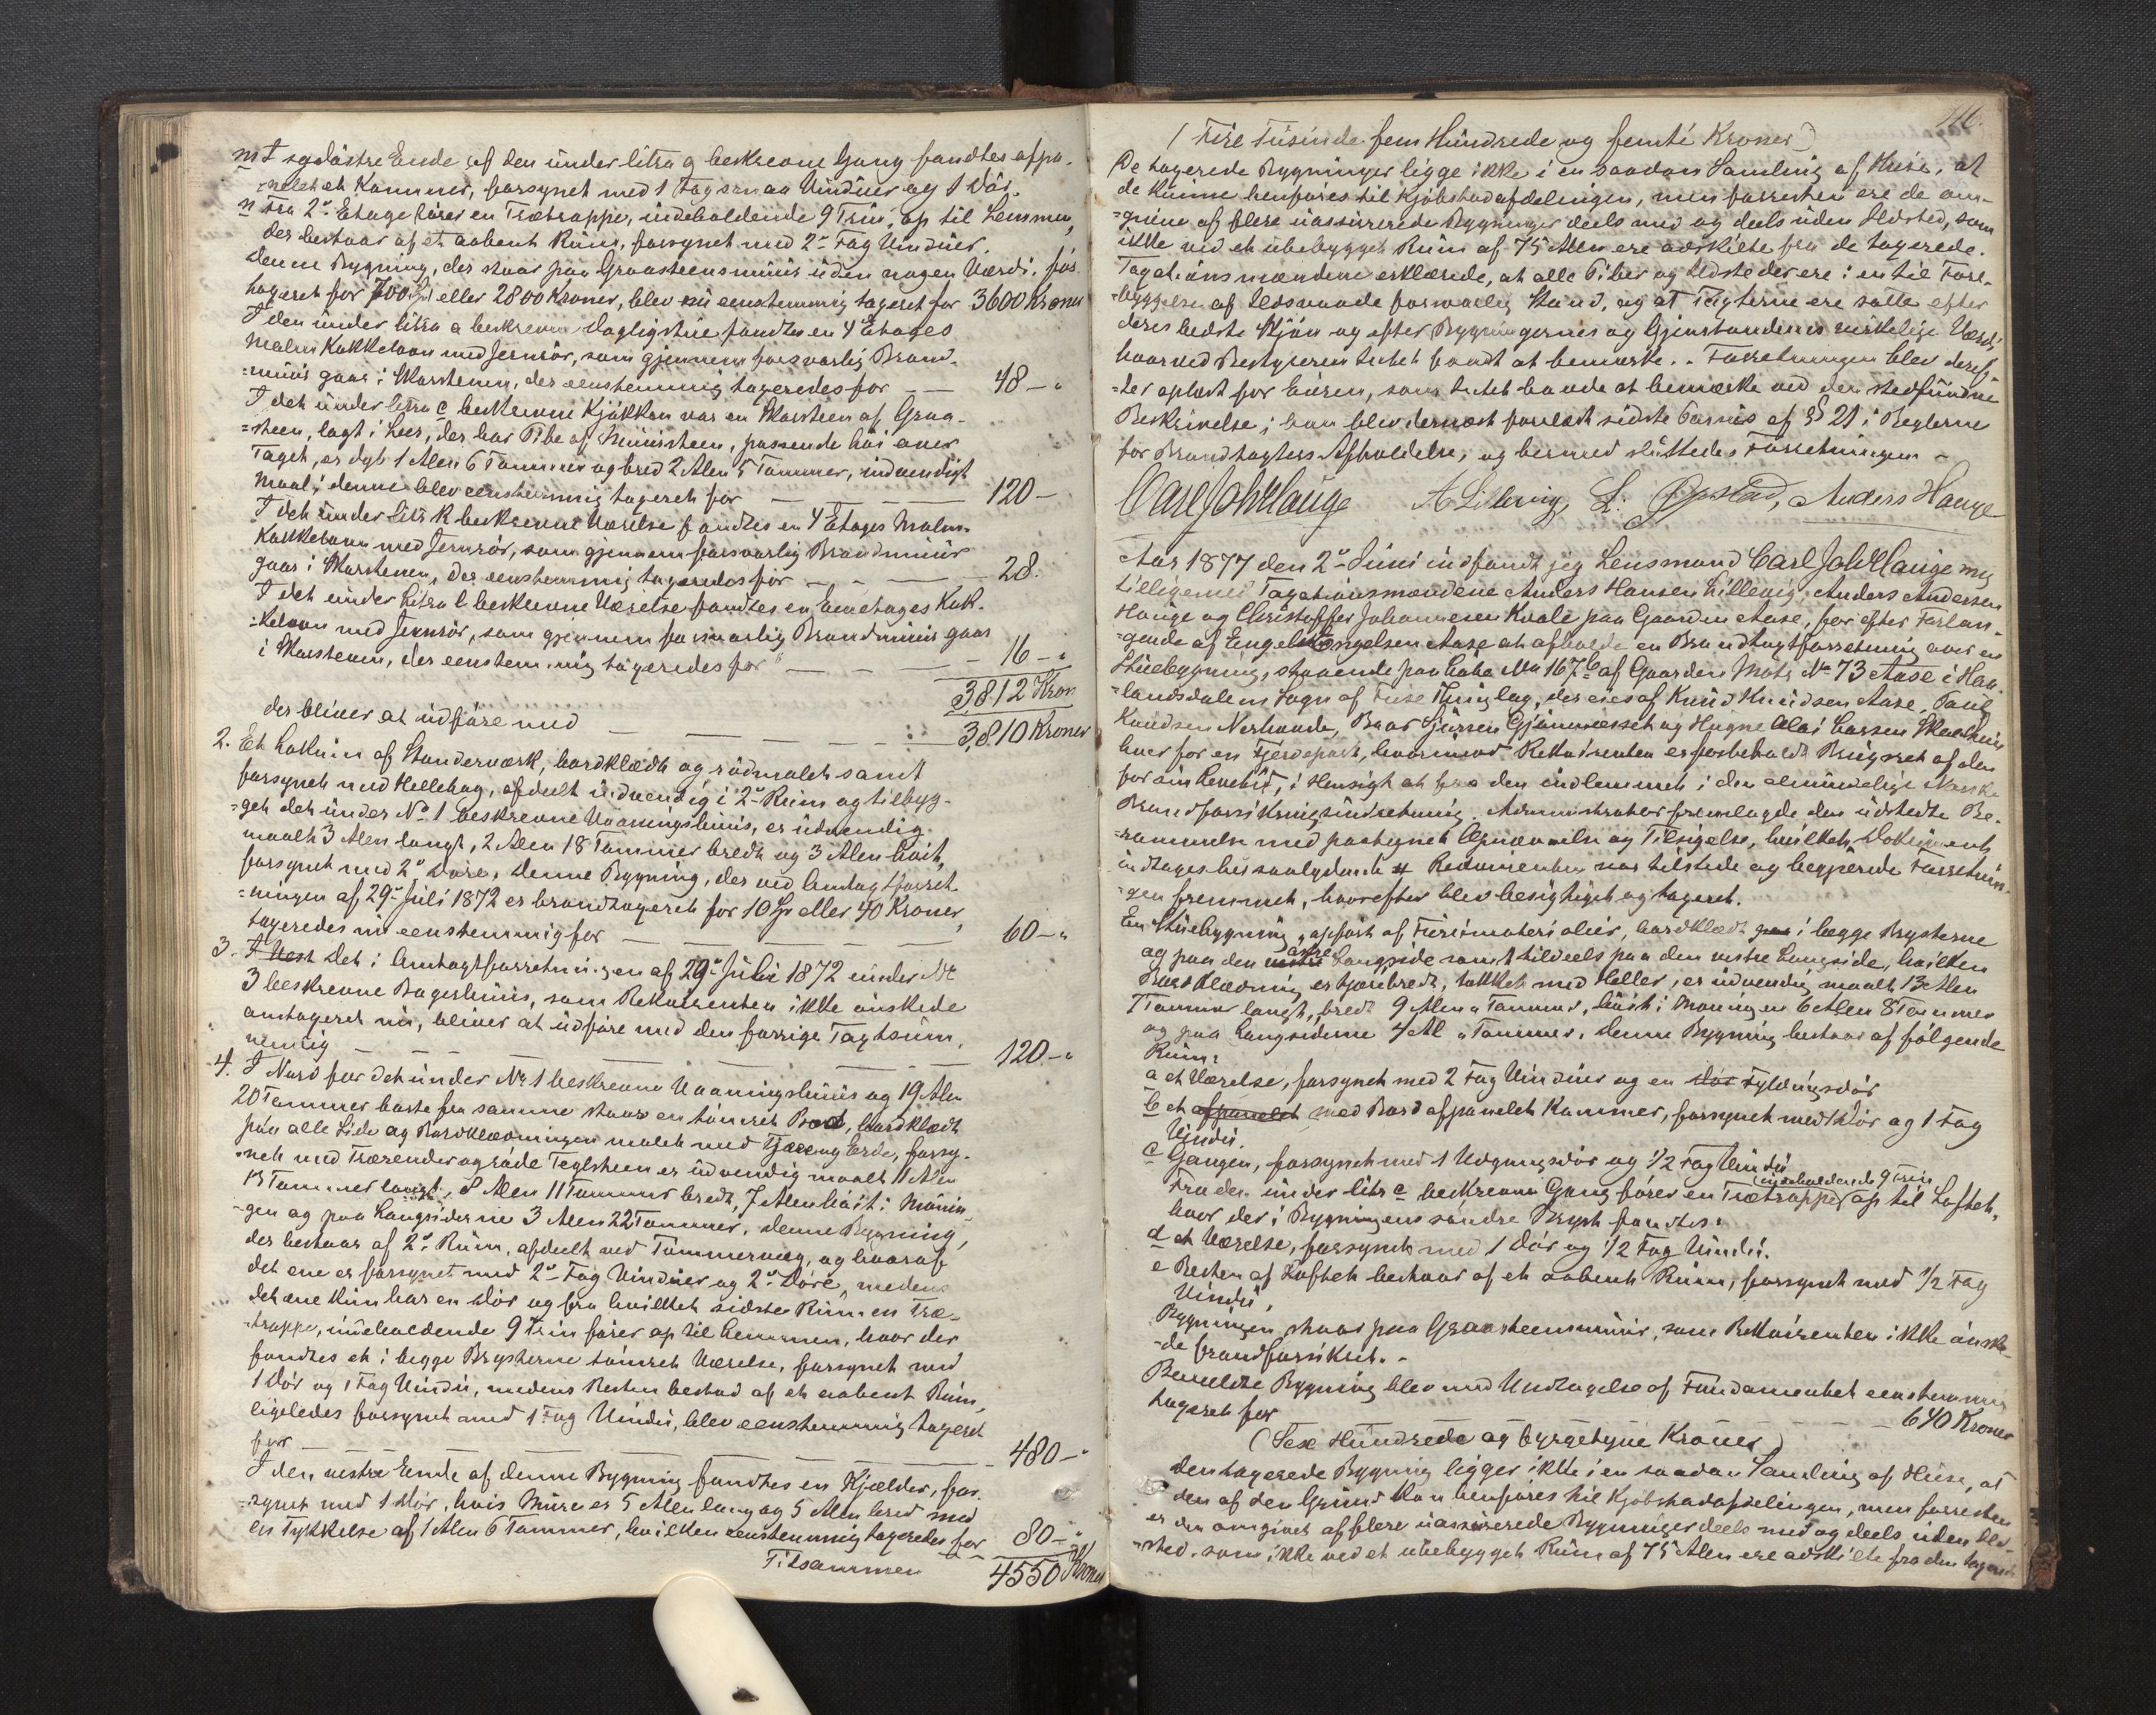 m I sydøstre Ende af den under litra g beskrevne Gang fandtes afpa-
nelet et Kammer, forsynet med 1 Fag smaa Vinduer og 1 Dør.
n Fra 2den Etage fører en Trætrappe, indeholdende 9 Trin, op til Lemmen,
der bestaar af et aabent Rum, forsynet med 2de Fag Vinduer.
Denne Bygning, der staar paa Graasteensmuur uden nogen Værdi, før
taxeret for 700 Spd eller 2800 Kroner, blev nu eenstemmig taxeret for 3600 Kroner
I den under litra a beskrevne Dagligstue fandtes en 4 Etages
Malm Kakkelovn med Jernrør, som gjennem forsvarlig Brand-
=muur gaar i Skorstenen, der eenstemmig taxeredes for — — 48 — "
I det under litra c beskrevne Kjøkken var en Skorsteen af Graa-
=steen, lagt i Leer, der har Pibe af Muursteen, passende høi over
Taget, er dyb 1 Alen 6 Tommer og bred 2 Alen 5 Tommer, indvendigt
Maal; denne blev eenstemmig taxeret for — — 120 —
I det under litra k beskrevne Værelse fandtes en 4 Etages Malm
Kakkelovn med Jernrør, som gjennem forsvarlig Brandmuur
gaar i Skorstenen, der eenstemmig taxeredes for — — — 28.
I det under Litra l beskrevne Værelse fandtes en Eenetages Kak-
kelovn med Jernrør, som gjennem forsvarlig Brandmuur gaar
i Skorstenen, der eenstemmig taxeredes for — — — 16 — "
3,812 Kron
der bliver at udføre med — — — — 3,810 Kroner
2. Et Lokum af Standerværk, bordklædt og rødmalet samt
forsynet med Helletag, afdeelt indvendig i 2de Rum og tilbyg-
=get det under No 1 beskrevne Vaaningshuus, er udvendig
maalt 3 Alen langt, 2 Alen 18 Tommer bredt og 3 Alen høit,
forsynet med 2de Døre. Denne Bygning, der ved Omtaxtforret-
=ningen af 29de Juli 1872 er brandtaxeret for 10 Spd eller 40 Kroner,
taxeredes nu eenstemmig for — — — — 60 — "
3. I Vest Det i Omtaxtforretningen af 29de Juli 1872 under No
3 beskrevne Bagerhuus, som Rekvirenten ikke ønskede
omtaxeret nu, bliver at udføre med den forrige Taxtsum,
nemlig — — — — 120 — "
4. I Nord for det under No 1 beskrevne Vaaningshuus og 19 Alen
20 Tommer borte fra samme staar en tømret Bod, bordklædt
paa alle Sider og Bordklædningen malet med Tjære og Erde, forsy-
net med Trærender og røde Teglsteen er udvendig maalt 11 Alen
13 Tommer langt, 8 Alen 11 Tommer bredt, 7 Alen høit i Mønin-
gen og paa Langsiderne 3 Alen 22 Tommer. Denne Bygning,
der bestaar af 2de Rum, afdeelt ved Tømmervæg, og hvoraf
det ene er forsynet med 2de Fag Vinduer og 2de Døre, medens
det ene kun har en Dør og fra hvilket sidste Rum en Træ-
trappe, indeholdende 9 Trin fører op til Lemmen, hvor der
fandtes et i begge Brysterne tømret Værelse, forsynet med
1 Dør og 1 Fag Vindu, medens Resten bestod af et aabent Rum,
ligeledes forsynet med 1 Fag Vindu, blev eenstemmig taxeret
for — — — — 480 — "
I den vestre Ende af denne Bygning fandtes en Kjælder, for-
synet med 1 Dør, hvis Mure er 5 Alen lang og 5 Alen bred med
en Tykkelse af 1 Alen 6 Tommer, hvilken eenstemmig taxeredes for 80 — "
Tilsammen 4550 Kroner
116.
(Fire Tusinde fem Hundrede og femti Kroner)
De taxerede Bygninger ligge ikke i en saadan Samling af Huse, at
de kunne henføres til Kjøbstadafdelingen, men forresten ere de om-
=givne af flere uassurerede Bygninger deels med og deels uden Ildsted, som
ikke ved et ubebygget Rum af 75 Alen ere adskilte fra de taxerede.
Taxationsmændene erklærede, at alle Piber og Ildsteder ere i en til Fore-
byggelse af Ildsvaade forsvarlig Stand, og at Taxterne ere satte efter
deres bedste Skjøn og efter Bygningernes og Gjenstandenes virkelige Værd,
hvorved Bestyreren Intet fandt at bemærke. - Forretningen blev deref-
ter oplæst for Eieren, som Intet havde at bemærke ved den stedfundne
Beskrivelse; han blev dernæst forelæst sidste Passus af § 21 i Reglerne
for Brandtaxters Afholdelse, og hermed sluttedes Forretningen -
Carl Joh Hauge A Lillevig, L. Opstad, Anders Hauge
Aar 1877 den 2den Juni indfandt jeg Lensmand Carl Joh Hauge mig
tilligemed Taxationsmændene Anders Hansen Lillevig, Anders Andersen
Hauge og Christoffer Johannesen Kvale paa Gaarden Aase, for efter Forlan-
gende af Engel Engelsen Aase at afholde en Brandtaxtforretning over en
Stuebygning, staaende paa Løbe No 167 b af Gaarden Matr No 73 Aase i Haa-
landsdalens Sogn af Fuse Thinglag, der eies af Knud Knudsen Aase, Poul
Knudsen Nerhovde, Baar Sjursen Gjønnesset og Magne Olai Larsen Skaalheim
hver for en Fjerdepart, hvorimod Rekvirenten er forbeholdt Brugsret af den
for sin Levetid, i Hensigt at faa den indlemmet i den almindelige Norske
Brandforsikringsindretning. Administrator fremlagde den udstedte Be-
rammelse med paategnet Opnævnelse og Tilsigelse, hvilket Dokument
indtages her saalydende # Rekvirenten var tilstede og begjerede Forretnin-
gen fremmet, hvorefter blev besigtiget og taxeret.
En Stuebygning, opført af Furrematerialier, bordklædt i begge Brysterne
og paa den vestre østre Langside samt tildeels paa den vestre Langside, hvilken
Bordklædning er tjærebredt, tækket med Heller, er udvendig maalt 13 Alen
7 Tommer langt, bredt 9 Alen " Tommer, høit i Møningen 6 Alen 8 Tommer
og paa Langsiderne 4 Al " Tommer. Denne Bygning bestaar af følgende
Rum:
a et Værelse, forsynet med 2 Fag Vinduer og en Dør Fyldingsdør
b et afpanelet med Bord afpanelet Kammer, forsynet med 1 Dør og 1 Fag
Vindu.
c Gangen, forsynet med 1 Udgangsdør og 1/2 Fag Vindu
Fra den under litr c beskrevne Gang fører en Trætrappe, (indeholdende 9 Trin op til Loftet,
hvor der i Bygningens søndre Bryst fandtes:
d et Værelse, forsynet med 1 Dør og 1/2 Fag Vindu.
e Resten af Loftet bestaar af et aabent Rum, forsynet med 1/2 Fag
Vindu.
Bygningen staar paa Graasteensmuur, som Rekvirenten ikke ønske-
de brandforsikret. -
Bemeldte Bygning blev med Undtagelse af Fundamentet eenstemmig
taxeret for — — — 640 Kroner
(Sex Hundrede og fyrgetyve Kroner)
Den taxerede Bygning ligger ikke i en saadan Samling af Huse, at
den af den Grund kan henføres til Kjøbstadafdelingen, men forresten
er den omgivet af flere uassurerede Bygninger deels med og deels uden Ild-
sted, som ikke ved et ubebygget Rum af 75 Alen ere adskilte fra den taxerede